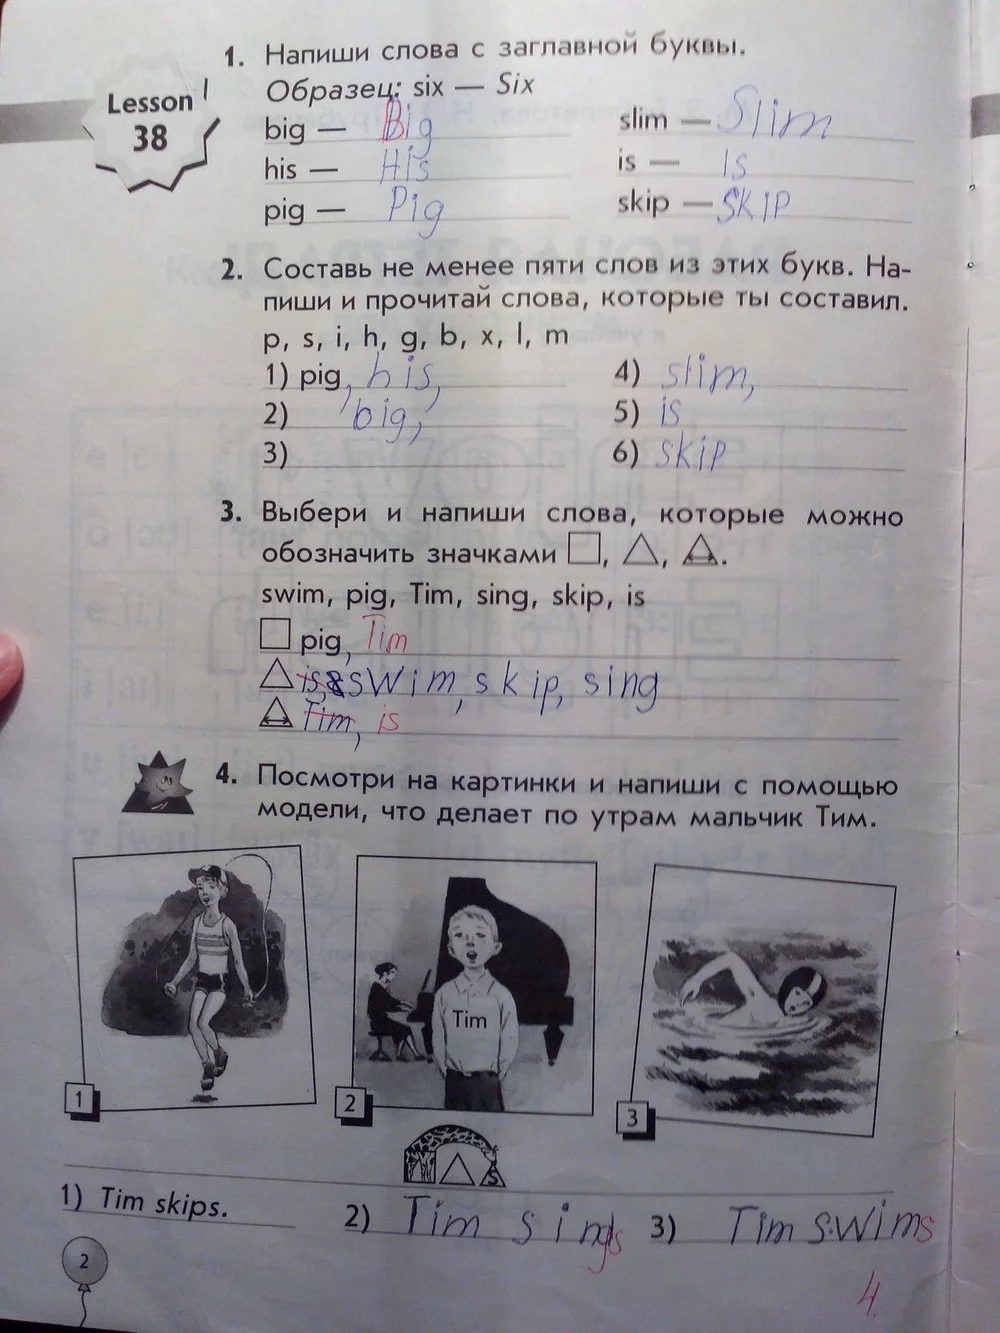 Lesson
38
1. Напиши слова с заглавной буквы.
Образец: six — Six
big — Big
slim — Slim
his — His
is — Is
pig — Pig
skip — SKIP
2. Составь не менее пяти слов из этих букв. На-
пиши и прочитай слова, которые ты составил.
p, s, i, h, g, b, x, l, m
1) pig, his,
4) slim,
2) big,
5) is
3)
6) skip
3. Выбери и напиши слова, которые можно
обозначить значками □, △, △.
swim, pig, Tim, sing, skip, is
pig, Tim
is, swim, skip, sing
Tim, is
4. Посмотри на картинки и напиши с помощью
модели, что делает по утрам мальчик Тим.
Tim
1
2
3
s
1) Tim skips.
2) Tim sings
3) Tim swims
2
4.